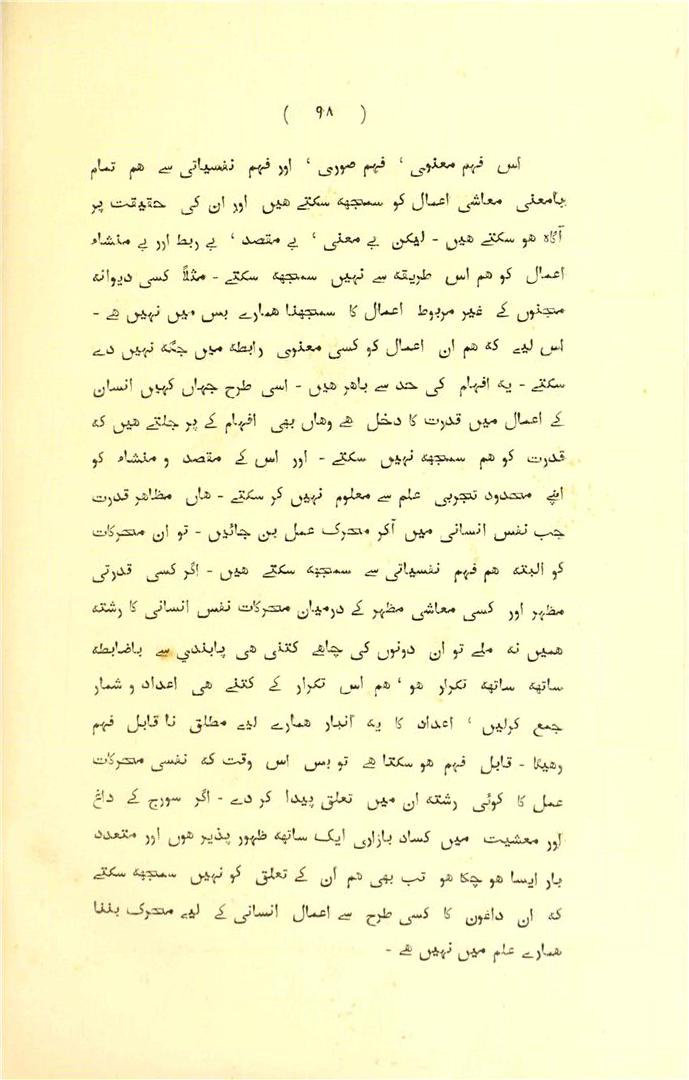 ( ۹۸ )
اس فہم معنوی ' فہم صوری ' اور فہم نفسیاتی سے ہم تمام
بامعنی معاشی اعمال کو سمجھہ سکتے ہیں اور ان کی حقیقت پر
آگاہ ہو سکتے ہیں - لیکن بے معنی ' بے مقصد ' بے ربط اور بے منشاء
اعمال کو ہم اس طریقہ سے نہیں سمجھہ سکتے - مثلاً کسی دیوانہ
مجنوں کے غیر مربوط اعمال کا سمجھنا ہمارے بس میں نہیں ہے -
اس لیے کہ ہم ان اعمال کو کسی معنوی رابطہ میں جگہ نہیں دے
سکتے - یہ افہام کی حد سے باہر ہیں - اسی طرح جہاں کہیں انسان
کے اعمال میں قدرت کا دخل ہے وہاں بھی افہام کے پر جلتے ہیں کہ
قدرت کو ہم سمجھہ نہیں سکتے - اور اس کے مقصد و منشاء کو
اپنے محدود تجربی علم سے معلوم نہیں کر سکتے - ہاں مظاہر قدرت
جب نفس انسانی میں آکر محرک عمل بن جائیں - تو ان محرکات
کو البتہ ہم فہم نفسیاتی سے سمجھہ سکتے ہیں - اگر کسی قدرتی
مظہر اور کسی معاشی مظہر کے درمیان محرکات نفس انسانی کا رشتہ
ہمیں نہ ملے تو ان دونوں کی چاہے کتنی ہی پابندی سے باضابطہ
ساتھہ ساتھہ تکرار ہو ' ہم اس تکرار کے کتنے ہی اعداد و شمار
جمع کرلیں ' اعداد کا یہ انبار ہمارے لیے مطلق نا قابل فہم
رہیگا - قابل فہم ہو سکتا ہے تو بس اس وقت کہ نفسی محرکات
عمل کا کوئی رشتہ ان میں تعلق پیدا کر دے - اگر سورج کے داغ
اور معشیت میں کساد بازاری ایک ساتھہ ظہور پذیر ہوں اور متعدد
بار ایسا ہو چکا ہو تب بھی ہم ان کے تعلق کو نہیں سمجھہ سکتے
کہ ان داغون کا کسی طرح سے اعمال انسانی کے لیے محرک بننا
ہمارے علم میں نہیں ہے -